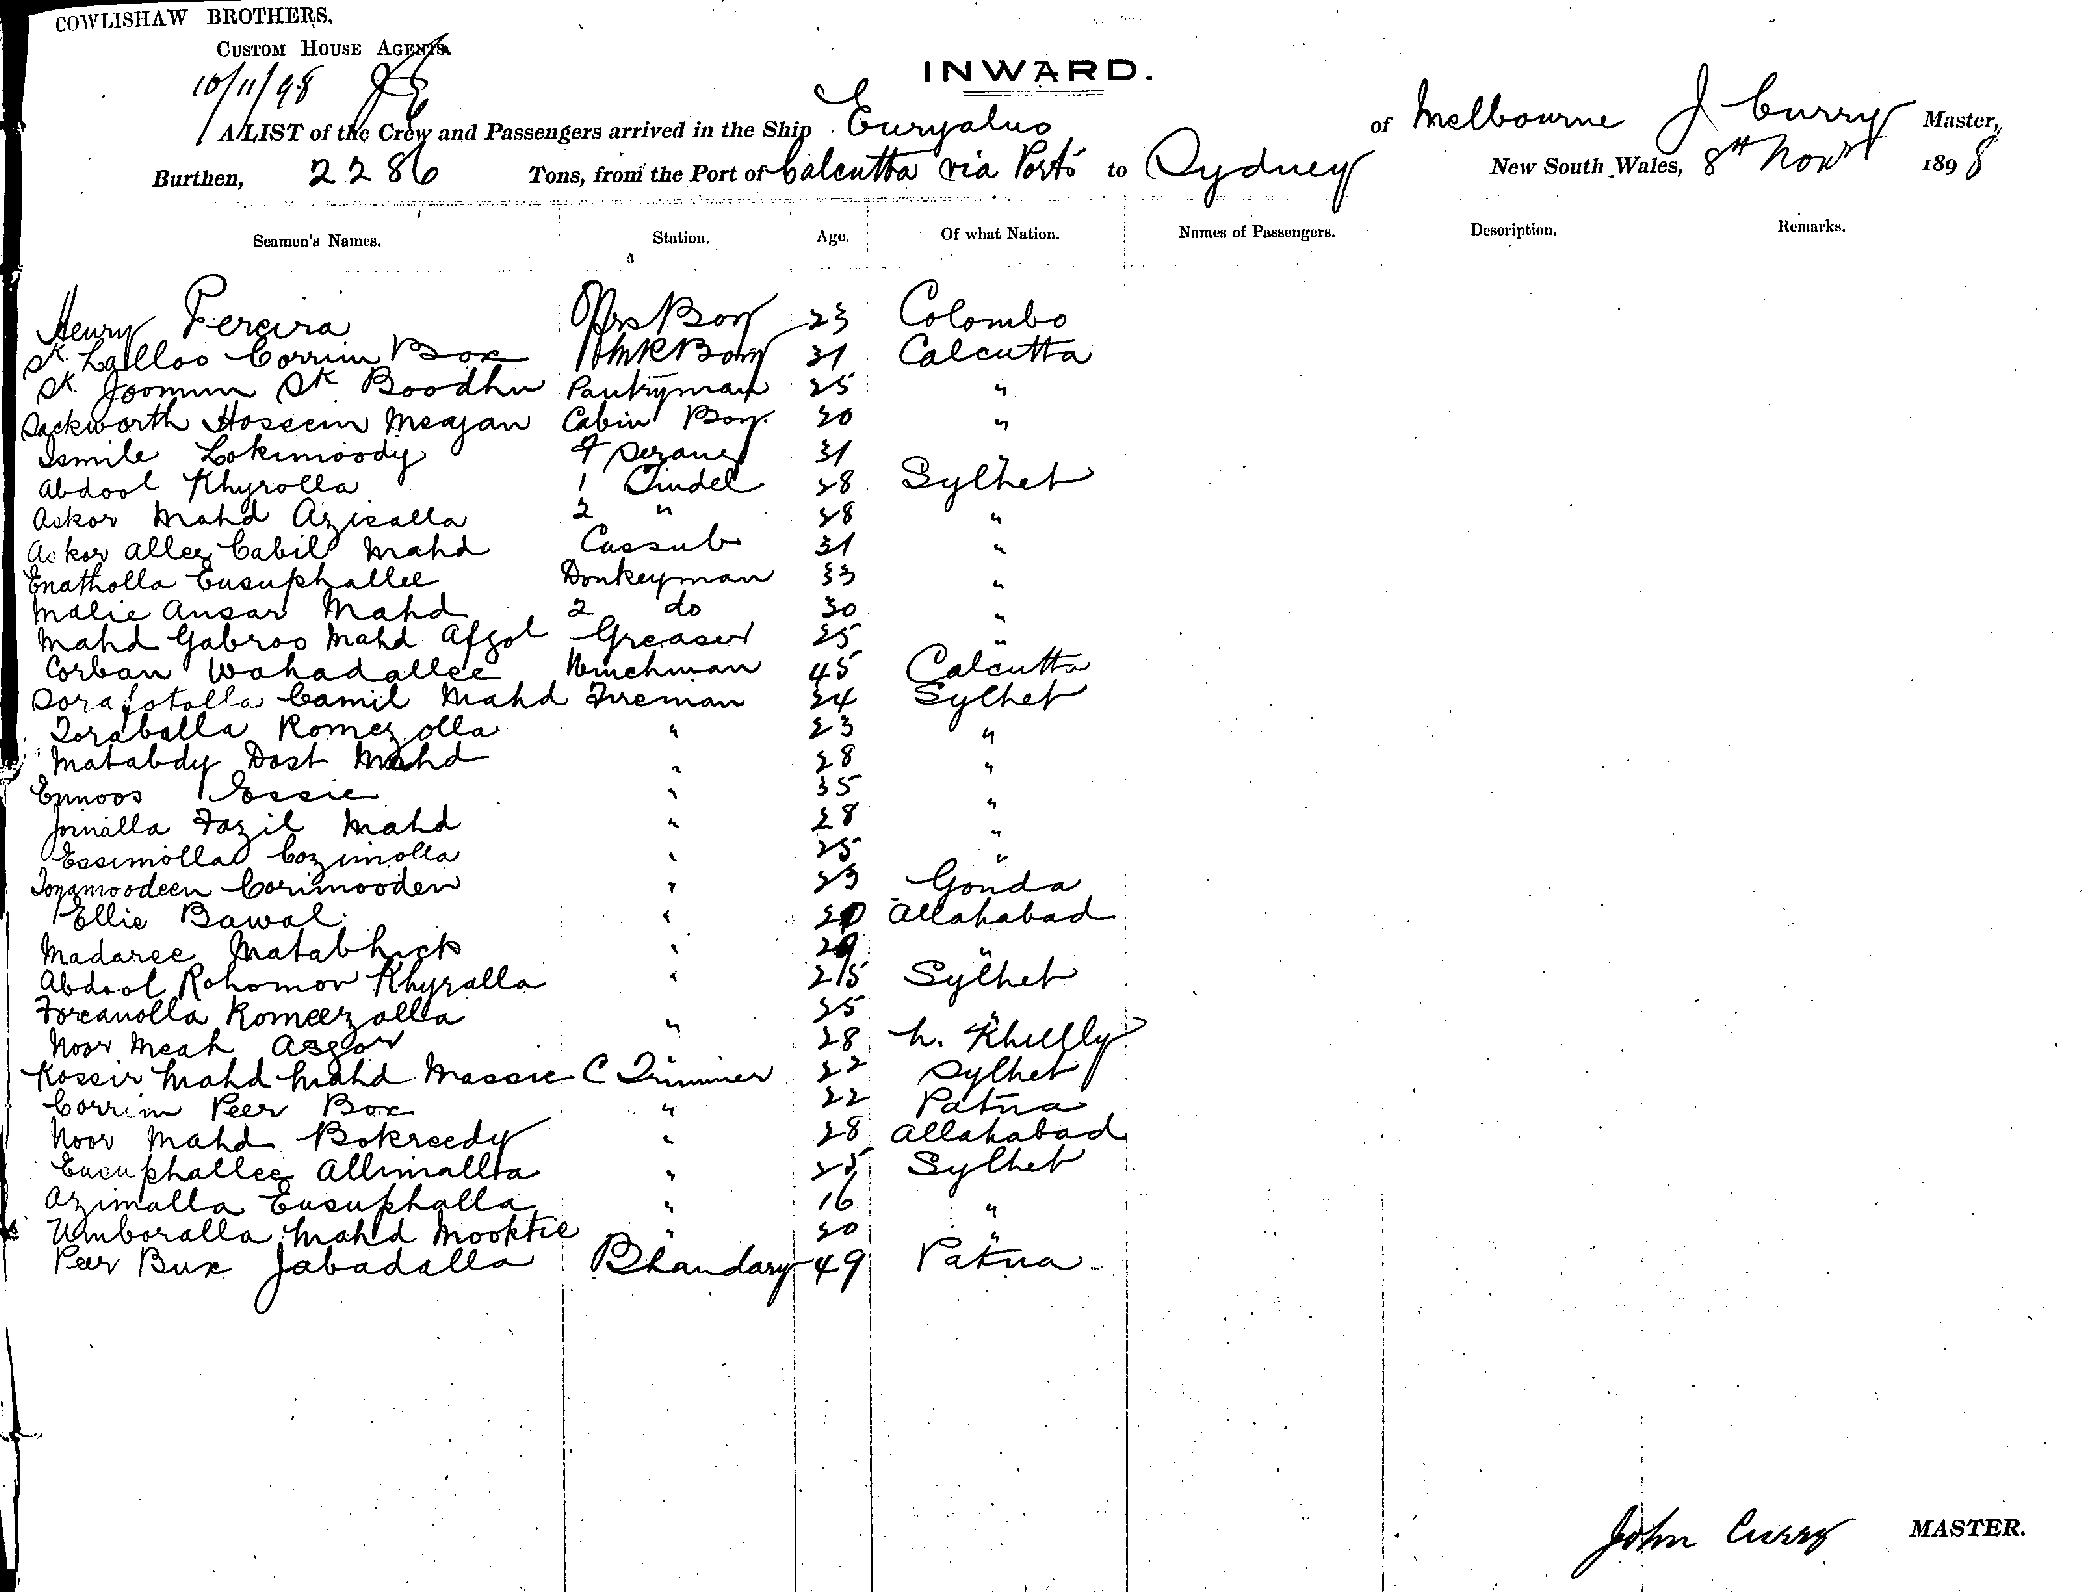 COWLISHAW BROTHERS,
CUSTOM HOUSE AGENTS.
10/11/98
INWARD.
A LIST of the Crew and Passengers arrived in the Ship Euryalus of Melbourne J Curry Master,
Burthen, 2286 Tons, from the Port of Calcutta via Ports to Sydney New South Wales, 8th Novr 1898
Seamen's Names. Station. Age. Of what Nation. Names of Passengers. Description. Remarks.
Henry Pereira Offrs Boy 23 Colombo
Sk Lalloo Corrim Box Boy 31 Calcutta
Sk Joomun Sk Boodhu Pantryman 25 "
Sackworth Hossein Meajan Cabin Boy 20 "
Ismile Lokimoody F Serang 31 "
Abdool Khyrolla 1 Tindel 28 Sylhet
Askor Mahd Azisalla 2 " 28 "
Askor Allee Cabil Mahd Cassub 31 "
Enatholla Eusuphallee Donkeyman 33 "
Malie Ansar Mahd 2 do 30 "
Mahd Gabroo Mahd Afzol Greaser 25 "
Corban Wahadallee Winchman 45 Calcutta
Sorafotolla Camil Mahd Fireman 24 Sylhet
Toraballa Romezolla " 23 "
Matabdy Dost Mahd " 28 "
Ennoos Essie " 35 "
Jornalla Fazil Mahd " 28 "
Essimolla Cozimolla " 25 "
Corimooden " 23 Gonda
Ellie Bawal " Allahabad
Madaree Matabhick " 29 "
Abdool Rohomon Khyralla " 25 Sylhet
Forcanolla Romeezolla 25 "
Noor Meah Asgor " 28 N. Khully
Kossir Mahd Mahd Massie C Trimmer 22 Sylhet
Corrim Peer Box " 22 Patna
Noor Mahd Bokreedy " 28 Allahabad
Eusuphallee Allimalla " 25 Sylhet
Azimalla Eusuphalla " 16 "
Umboralla Mahd Mooktie " 20 "
Peer Bux Jabadalla Bhandary 49 Patna
John Curry MASTER.